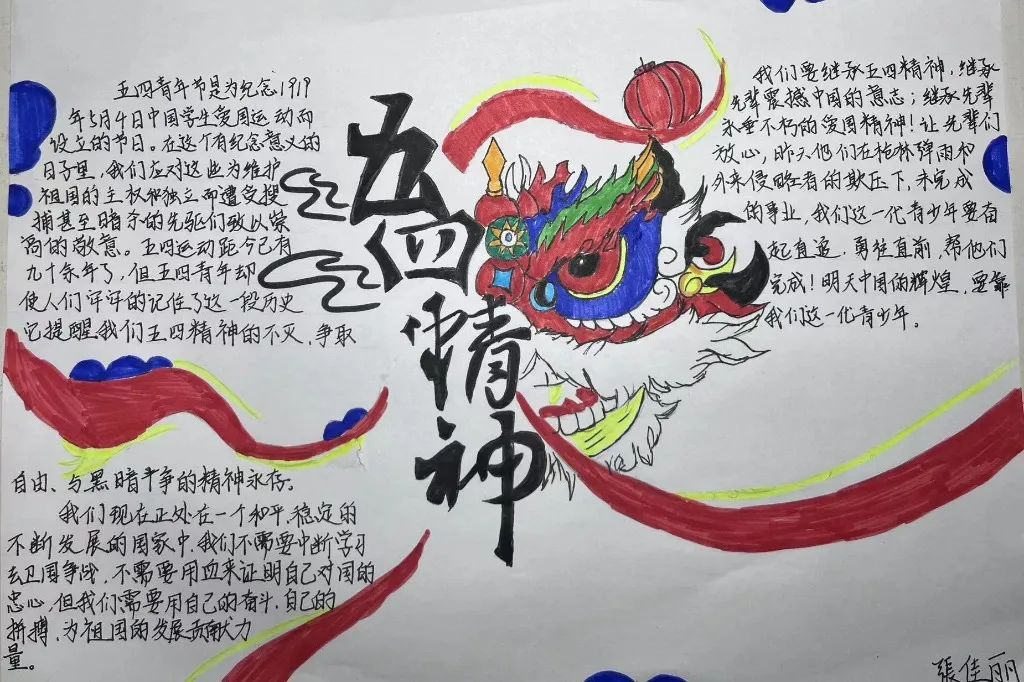 五四青年节是为纪念1919
年5月4日中国学生爱国运动而
设立的节日。在这个有纪念意义的
日子里,我们应对这些为维护
祖国的主权和独立而遭受搜
捕甚至暗杀的先驱们致以崇
高的敬意。五四运动距今已有
九十余年了,但五四青年却
使人们牢牢的记住了这一段历史
它提醒我们五四精神的不灭,争取
自由、与黑暗斗争的精神永存。
我们现在正处在一个和平,稳定的
不断发展的国家中,我们不需要中断学习
去卫国争战,不需要用血来证明自己对国的
忠心,但我们需要用自己的奋斗,自己的
拼搏,为祖国的发展贡献力
量。
五四精神
我们要继承五四精神,继承
先辈震撼中国的意志;继承先辈
永垂不朽的爱国精神!让先辈们
放心,昨天他们在枪林弹雨和
外来侵略者的欺压下,未完成
的事业,我们这一代青少年要奋
起直追,勇往直前,帮他们
完成!明天中国的辉煌,要靠
我们这一代青少年。
張佳丽